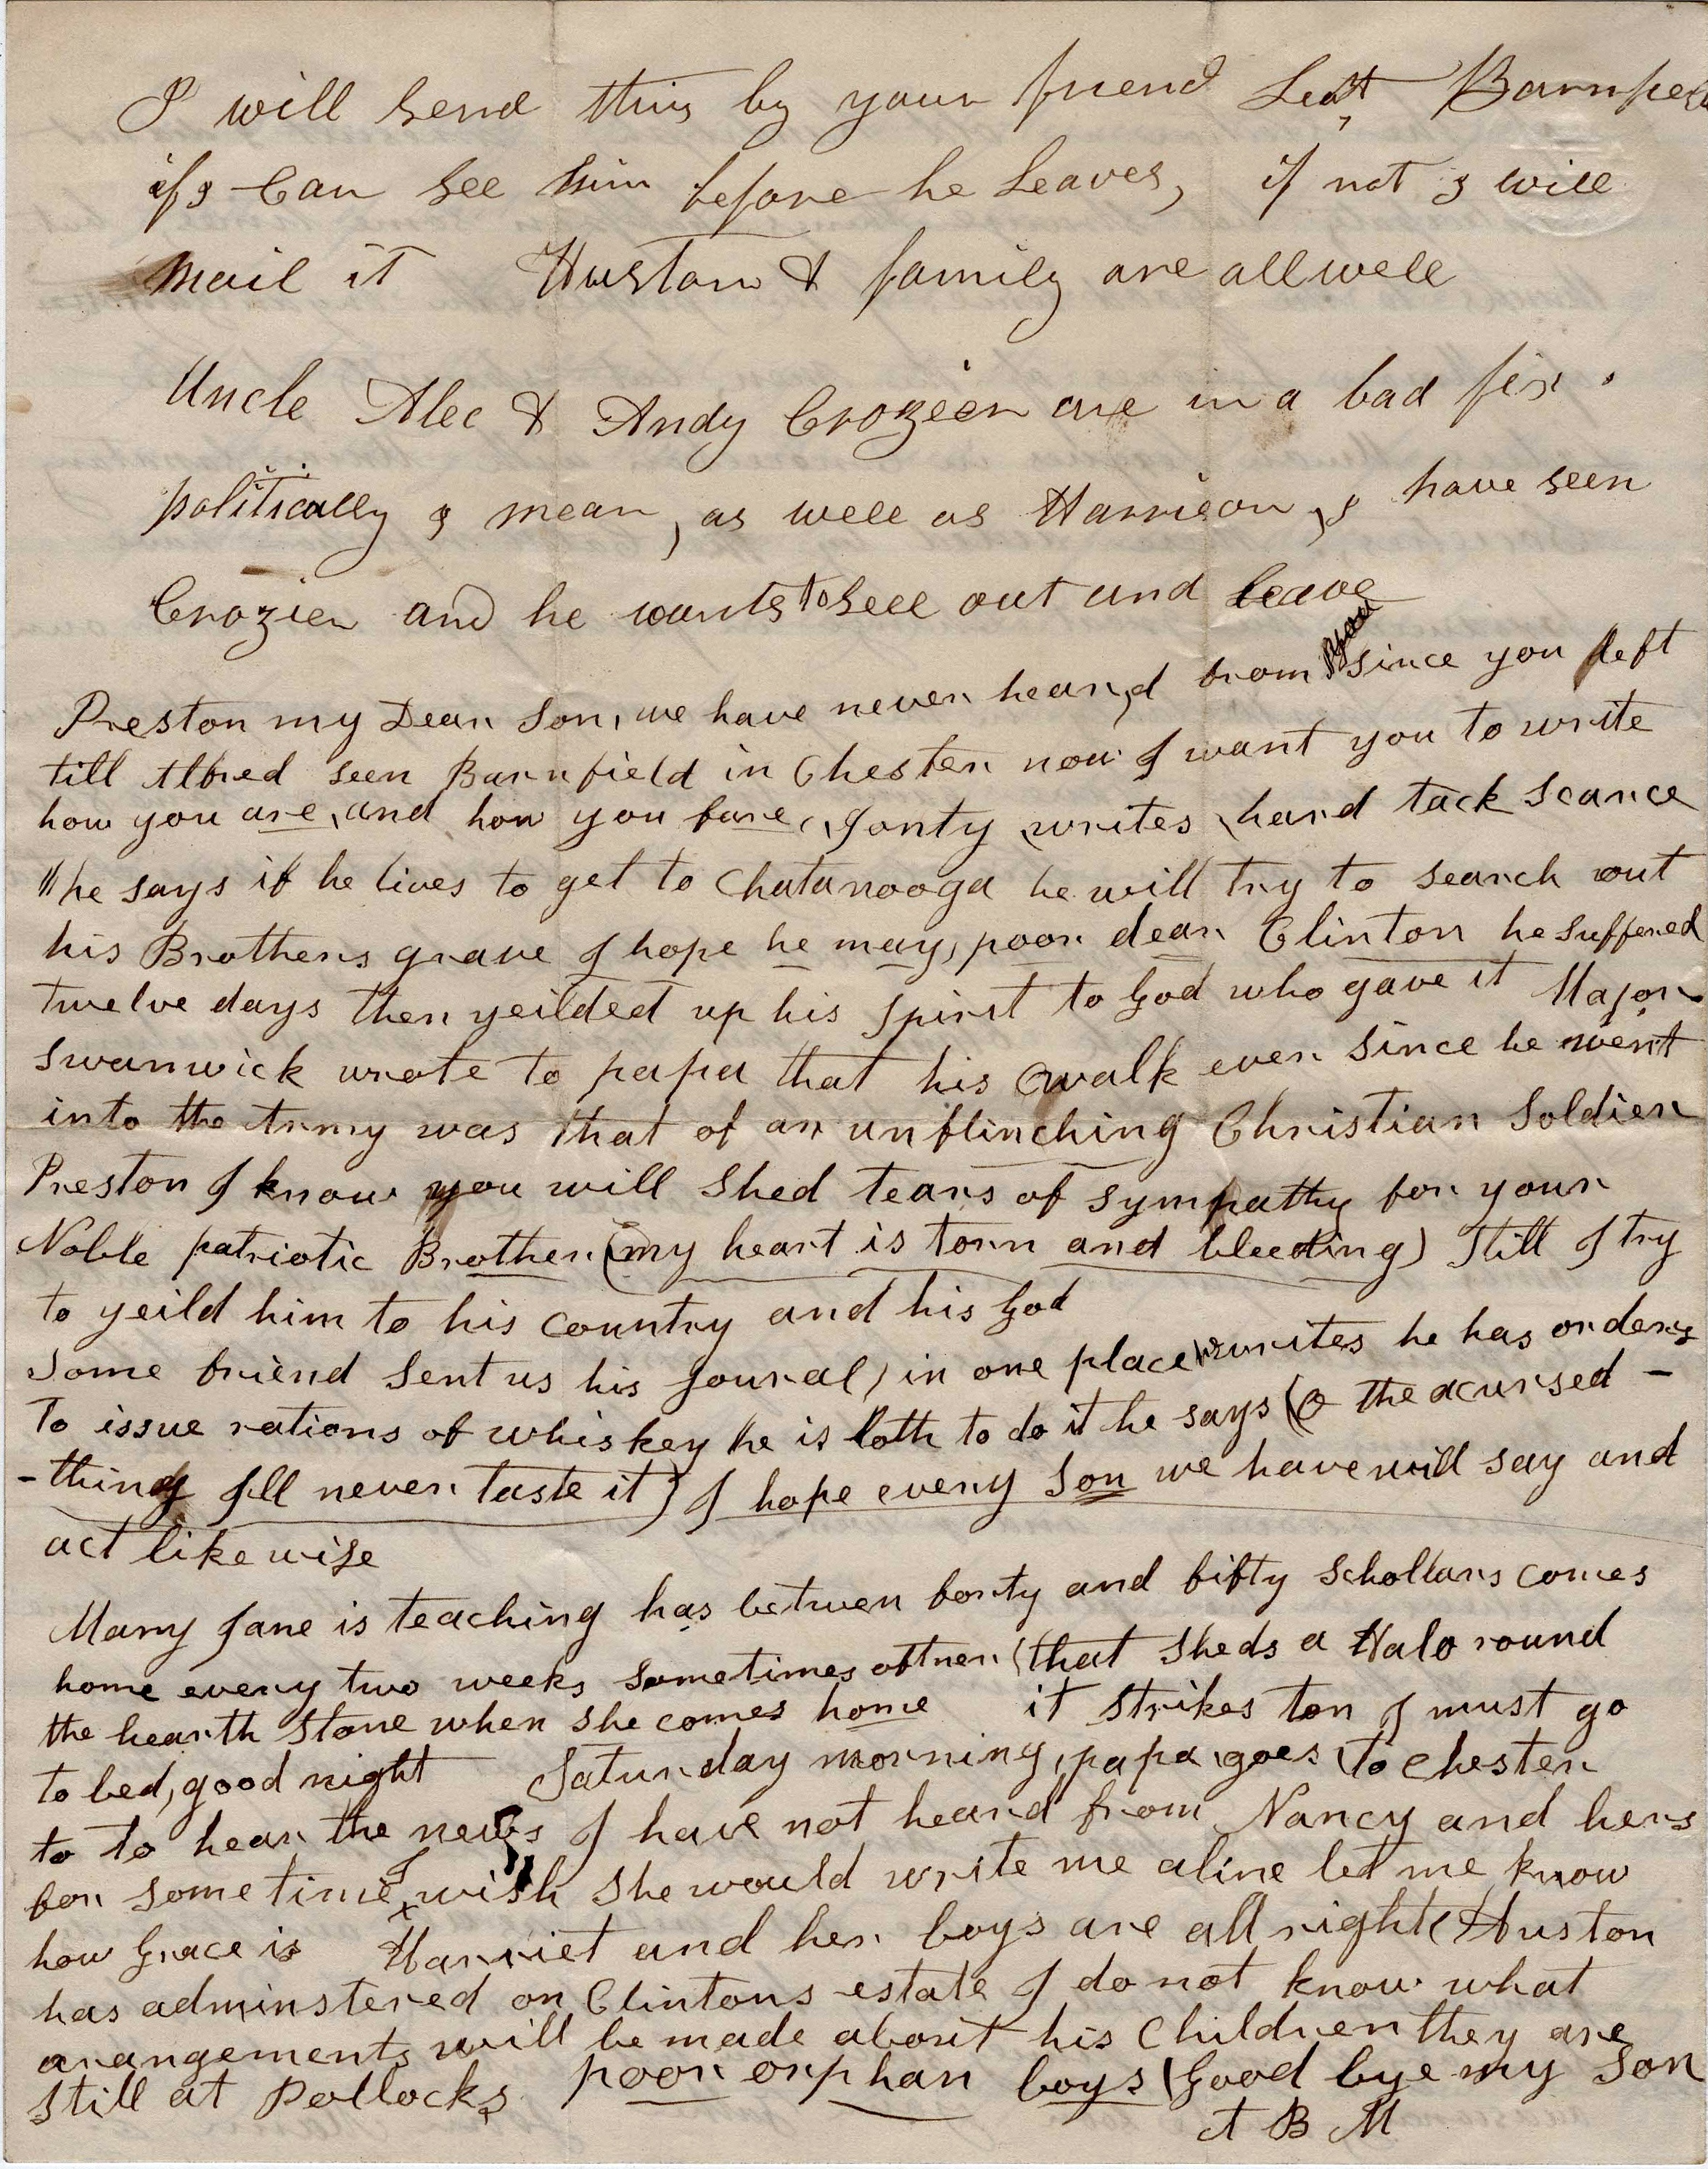 I will send this by your friend Leut Barnfield
if I Can see him before he Leaves, if not I will
mail it Huston & family are all well
Uncle Alec & Andy Crozier are in a bad fix
politically I mean, as well as Harrison, I have seen
Crozier and he wants to sell out and leave
Preston my Dear Son, we have never heard from you since you left
till Alfred seen Barnfield in Chester now I want you to write
how you are, and how you fare, Jonty writes hard tack scarce
he says if he lives to get to Chatanooga he will try to search out
his Brothers grave I hope he may, poor dear Clinton he suffered
twelve days then yeilded up his spirit to God who gave it Major
Swanwick wrote to papa that his walk ever since he went
into the Army was that of an unflinching Christian Soldier
Preston I know you will shed tears of sympathy for your
Noble patriotic Brother (my heart is torn and bleeding) still I try
to yeild him to his country and his God
some friend sent us his Joural, in one place he writes he has orders
To issue rations of whiskey he is loth to do it he says (O the acursed -
- thing I'll never taste it) I hope every Son we have will say and
act like wise
Mary Jane is teaching has betwen forty and fifty schollars comes
home every two weeks sometimes oftner (that sheds a Halo round
the hearth stone when she comes home it strikes ten I must go
to bed, good night Saturday morning, papa goes to Chester
to to hear the news I have not heard from Nancy and hers
for some time I wish she would write me a line let me know
how Grace is Harriet and her boys are all right (Huston
has adminstered on Clintons estate I do not know what
arangements will be made about his Children they are
still at Pollocks poor orphan boys (Good bye my Son
A B M